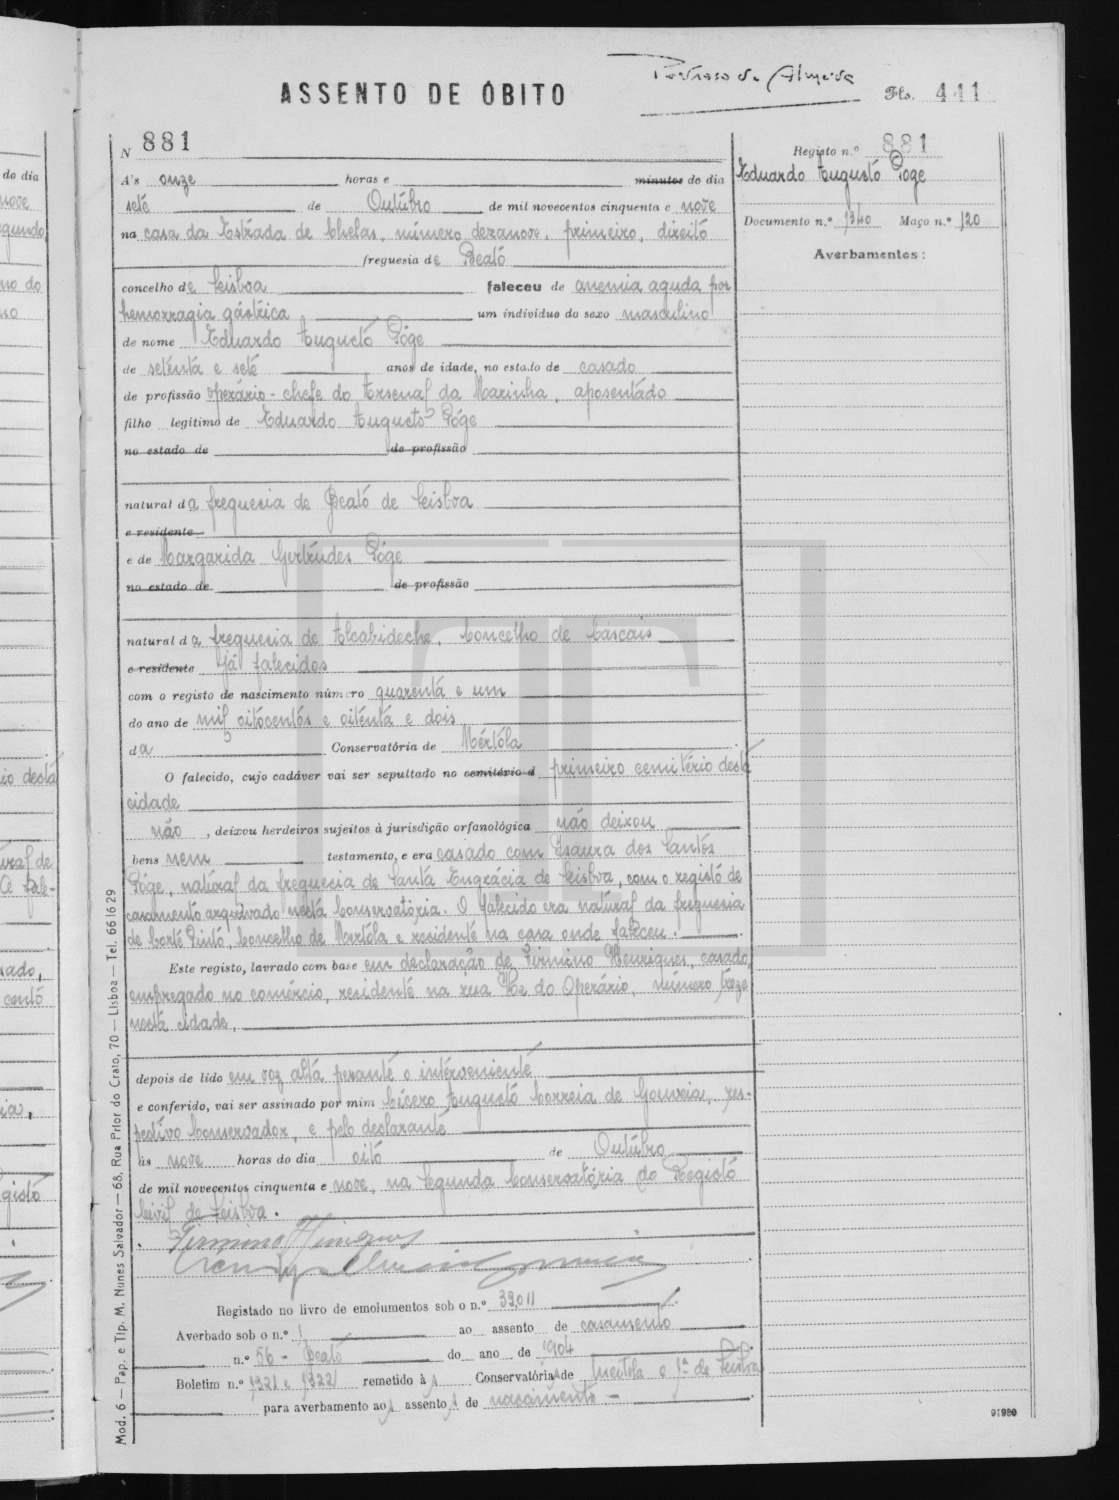 Pedroso de Almeida
ASSENTO DE ÓBITO
Fls. 441
N 881
A's onze horas e minutos do dia
sete de Outubro de mil novecentos cinquenta e nove
na casa da Estrada de Chelas, número dezanove, primeiro, direito
freguesia de Beato
concelho de Lisboa faleceu de anemia aguda por
hemorragia gástrica um indivíduo do sexo masculino
de nome Eduardo Augusto Póge
de setenta e sete anos de idade, no estado de casado
de profissão operário-chefe do Arsenal da Marinha, aposentado
filho legítimo de Eduardo Augusto Póge
no estado de de profissão
natural da freguesia do Beato de Lisboa
e residente
e de Margarida Gertrudes Póge
no estado de de profissão
natural da freguesia de Alcabideche, Concelho de Cascais
e residente Já falecidos
com o registo de nascimento número quarenta e um
do ano de mil oitocentos e oitenta e dois
da Conservatória de Mértola
O falecido, cujo cadáver vai ser sepultado no cemitério d primeiro cemitério desta
cidade
não, deixou herdeiros sujeitos à jurisdição orfanológica não deixou
bens nem testamento, e era casado com Isaura dos Santos
Póge, natural da freguesia de Santa Engrácia de Lisboa, com o registo de
casamento arquivado nesta Conservatória. O falecido era natural da freguesia
de Corte Pinto, Concelho de Mértola e residente na casa onde faleceu.
Este registo, lavrado com base em declaração de Firmino Henriques, casado,
empregado no comércio, residente na rua Voz do Operário, número treze
nesta cidade,
depois de lido em voz alta perante o interveniente
e conferido, vai ser assinado por mim Cícero Augusto Correia de Gouveia, res-
pectivo Conservador, e pelo declarante
às nove horas do dia oito de Outubro
de mil novecentos cinquenta e nove, na Segunda Conservatória do Registo
Civil de Lisboa.
Firmino Henriques
Registado no livro de emolumentos sob o n.º 39011
Averbado sob o n.º 1 ao assento de casamento
n.º 56 - Beato do ano de 1904
Boletim n.º 1321 e 1322 remetido à Conservatória de Mértola e 1ª de Lisboa
para averbamento ao assento de nascimento -
Registo n.º 881
Eduardo Augusto Póge
Documento n.º 1340 Maço n.º 120
Averbamentos:
91980
Mod. 6 — Pap. e Tip. M. Nunes Salvador — 68, Rua Prior do Crato, 70 — Lisboa — Tel. 661629